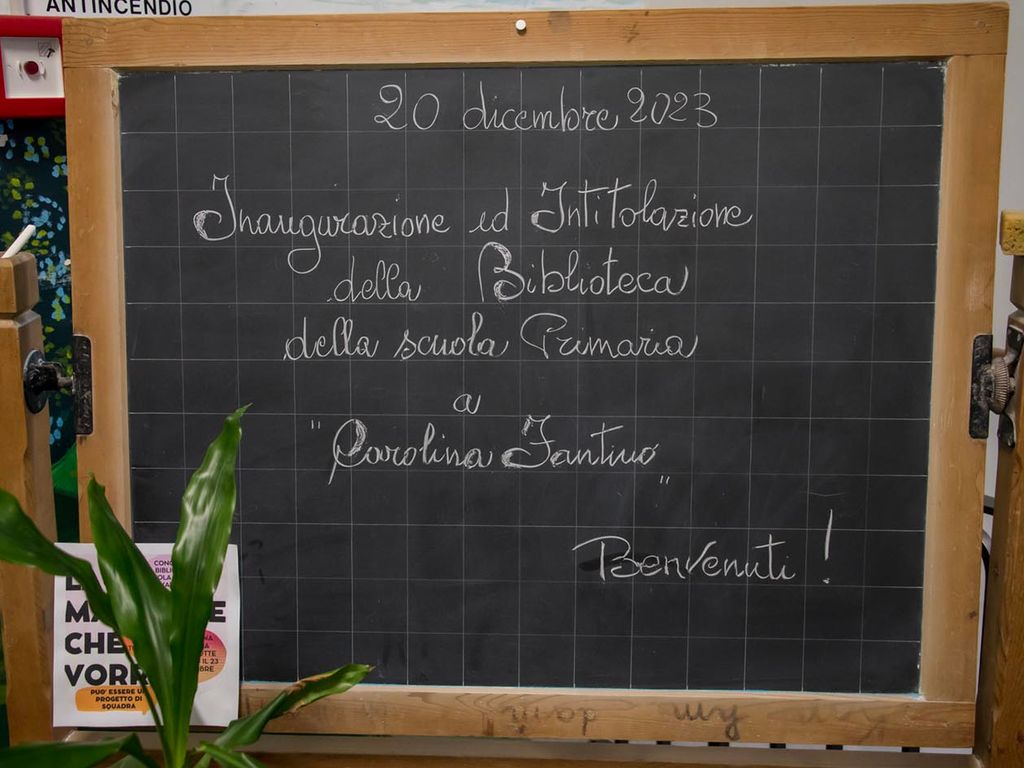 ANTINCENDIO
20 dicembre 2023
Inaugurazione ed Intitolazione
della Biblioteca
della scuola Primaria
a
"Carolina Fantino"
Benvenuti!
CHE
PUO' ESSERE
PROGETTO DI
SQUADRA
IL 23